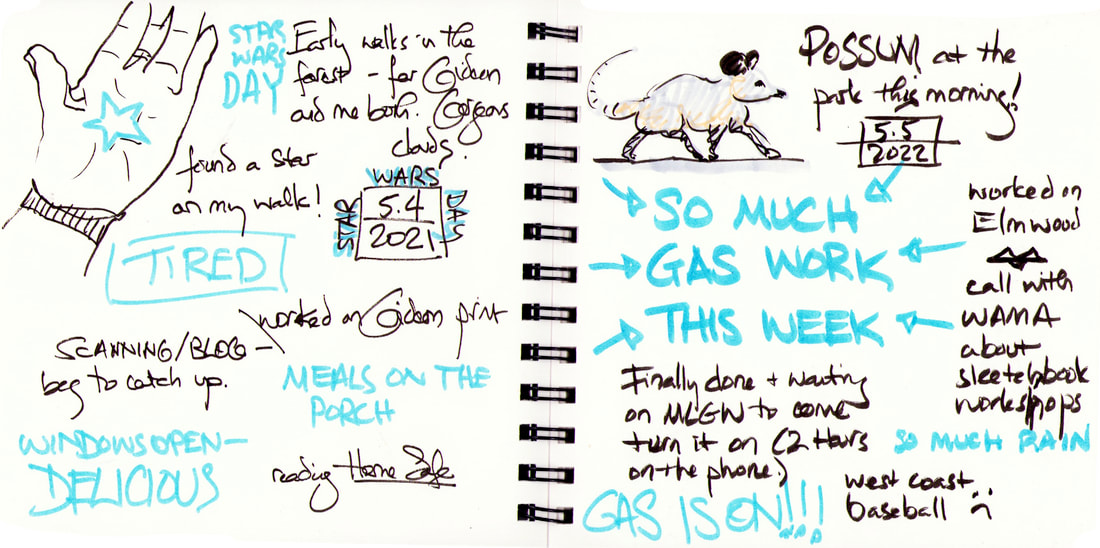 STAR
WARS
DAY
Early walks in the
forest – for Gideon
and me both. Gorgeous
clouds.
found a star
on my walk!
WARS
STAR
5.4
2021
DAY
TIRED
worked on Gideon print
SCANNING/BLOG –
beg to catch up.
MEALS ON THE
PORCH
WINDOWS OPEN –
DELICIOUS
reading Home Safe
POSSUM at the
park this morning!
5.5
2022
SO MUCH
GAS WORK
THIS WEEK
worked on
Elmwood
call with
WAMA
about
sketchbook
workshops
Finally done + waiting
on MLGW to come
turn it on (2 Hours
on the phone.)
SO MUCH RAIN
GAS IS ON!!!
west coast
baseball :(